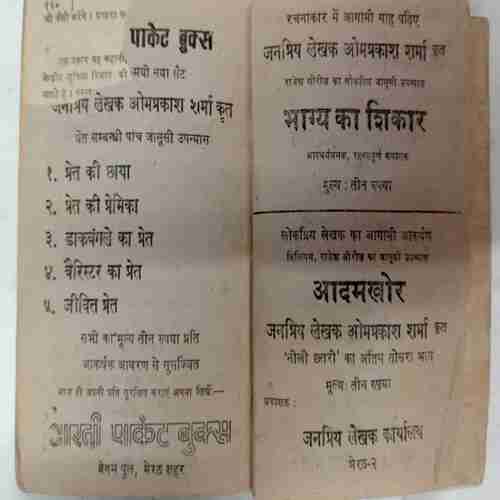 ११०
पाकेट बुक्स
नयी नया सैट
जनप्रिय लेखक ओमप्रकाश शर्मा कृत
प्रेत सम्बन्धी पांच जासूसी उपन्यास
१. प्रेत की छाया
२. प्रेत की प्रेमिका
३. डाकबंगले का प्रेत
४. बैरिस्टर का प्रेत
५. जीवित प्रेत
सभी का मूल्य तीन रुपया प्रति
आकर्षक आवरण से सुसज्जित
आज ही अपनी प्रति सुरक्षित कराएं अथवा लिखें—
आरती पाकेट बुक्स
बेगम पुल, मेरठ शहर
रचनाकार में आगामी माह पढ़िए
जनप्रिय लेखक ओमप्रकाश शर्मा कृत
राजेश सीरीज का लोकप्रिय जासूसी उपन्यास
भाग्य का शिकार
आश्चर्यजनक, रहस्यपूर्ण कथानक
मूल्य : तीन रुपया
लोकप्रिय लेखक का आगामी आकर्षण
राजेश सीरीज का जासूसी उपन्यास
आदमखोर
जनप्रिय लेखक ओमप्रकाश शर्मा कृत
'नीली छतरी' का अंतिम तीसरा भाग
मूल्य: तीन रुपया
प्रकाशक :
जनप्रिय लेखक कार्यालय
मेरठ-२